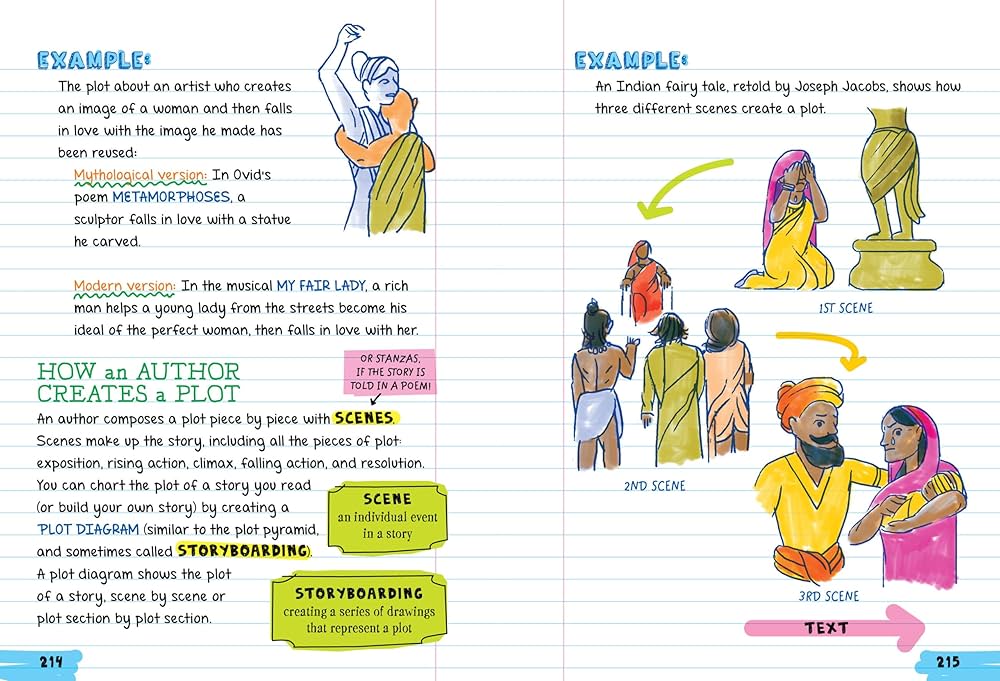 EXAMPLE:
The plot about an artist who creates
an image of a woman and then falls
in love with the image he made has
been reused:
Mythological version: In Ovid's
poem METAMORPHOSES, a
sculptor falls in love with a statue
he carved.
Modern version: In the musical MY FAIR LADY, a rich
man helps a young lady from the streets become his
ideal of the perfect woman, then falls in love with her.
HOW an AUTHOR
CREATES a PLOT
OR STANZAS,
IF THE STORY IS
TOLD IN A POEM!
An author composes a plot piece by piece with SCENES.
Scenes make up the story, including all the pieces of plot:
exposition, rising action, climax, falling action, and resolution.
You can chart the plot of a story you read
(or build your own story) by creating a
PLOT DIAGRAM (similar to the plot pyramid,
and sometimes called STORYBOARDING).
A plot diagram shows the plot
of a story, scene by scene or
plot section by plot section.
SCENE
an individual event
in a story
STORYBOARDING
creating a series of drawings
that represent a plot
214
EXAMPLE:
An Indian fairy tale, retold by Joseph Jacobs, shows how
three different scenes create a plot.
1ST SCENE
2ND SCENE
3RD SCENE
TEXT
215